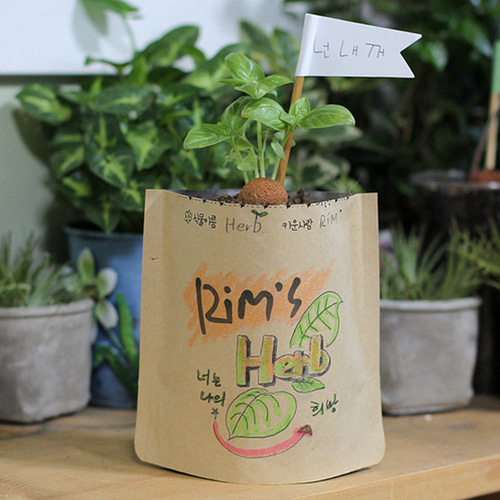 넌 내 꺼
식물이름 Herb 키운사람 RiM
RiM's
Herb
너는
나의
희망